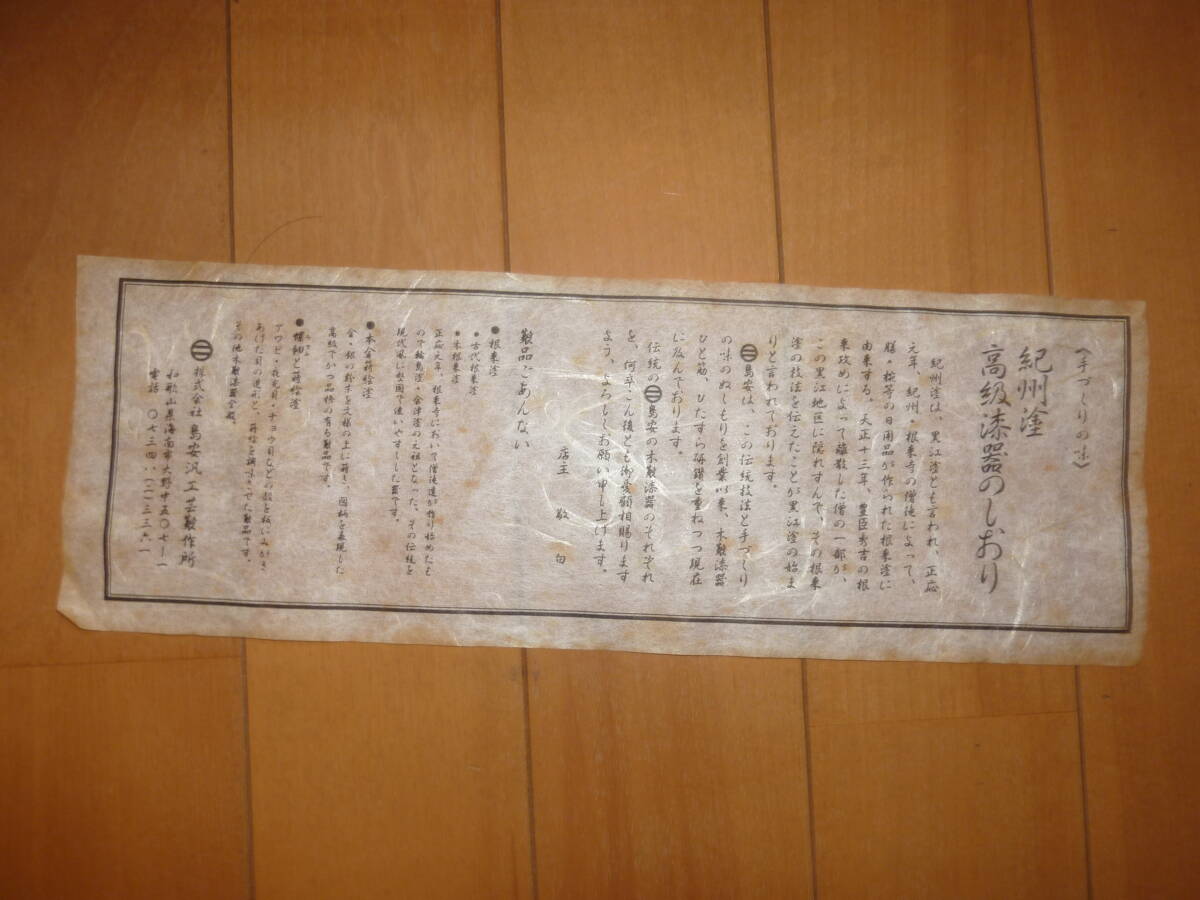 〈手づくりの味〉
紀州塗
高級漆器のしおり
紀州塗は、黒江塗とも言われ、正応
元年、紀州・根来寺の僧徒によって、
膳・椀等の日用品が作られた根来塗に
由来する。天正十三年、豊臣秀吉の根
来攻めによって離散した僧の一部が、
この黒江地区に隠れすんで、その根来
塗の技法を伝えたことが黒江塗の始ま
りと言われております。
島安は、この伝統技法と手づくり
の味のぬしもりを創業以来、木製漆器
ひと筋、ひたすら研鑽を重ねつつ現在
に及んでおります。
伝統の㊁島安の木製漆器のそれぞれ
を、何卒こん後とも御愛顧相賜ります
よう、よろしくお願い申し上げます。
店主 敬白
製品ごあんない
●根来塗
・古代根来塗
・本根来塗
正応元年、根来寺において僧徒達が作り始めたも
ので輪島塗・会津塗の元祖となった、その伝統を
現代風に堅固で使いやすくした器です。
●本金蒔絵塗
金・銀の粉子を文様の上に蒔き、図柄を表現した
高級でかつ品格の有る製品です。
●螺鈿と蒔絵塗
アワビ・夜光貝・チョウ貝などの殻を板にみがき
あげた貝の造形と、蒔絵を調
た製品です。
その他木製漆器全般。
株式会社 島安汎工芸製作所
和歌山県海南市大野中五〇七―一
電話 〇七三四八(二)三三六一